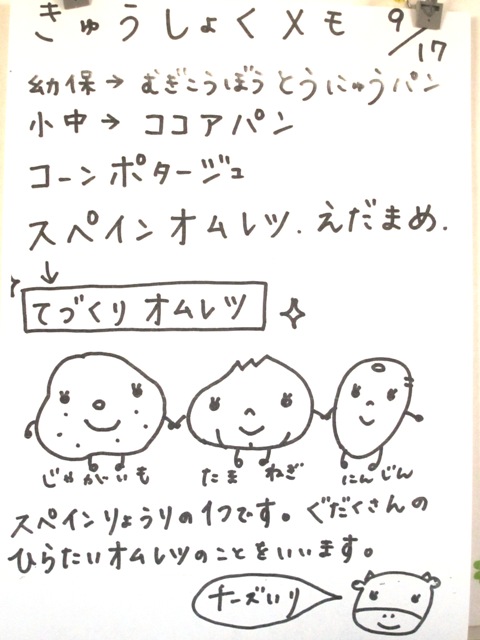 きゅうしょくメモ 9/17
幼保→むぎこうぼうとうにゅうパン
小中→ココアパン
コーンポタージュ
スペインオムレツ.えだまめ.
↓
てづくりオムレツ
じゃがいも たまねぎ にんじん
スペインりょうりの1つです。ぐだくさんの
ひらたいオムレツのことをいいます。
チーズいり